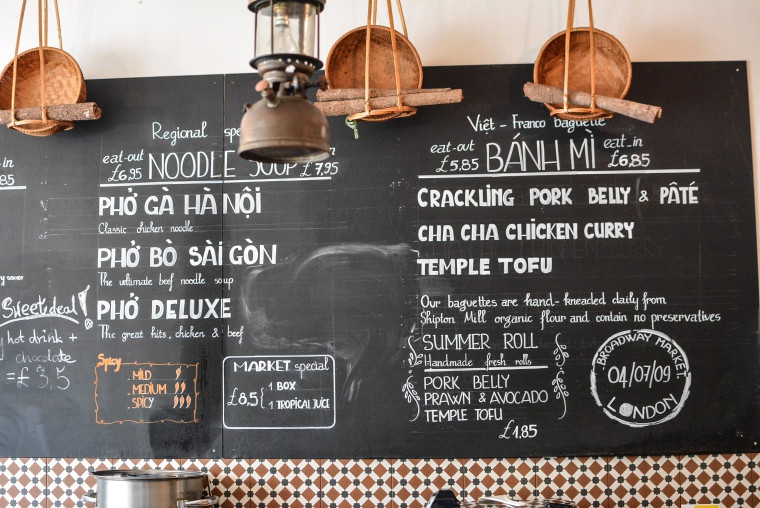 -in
85
Sweet deal!
hot drink +
chocolate
= £ 3,5
Regional
eat-out
£6,95
NOODLE SOUP
£7,95
PHỞ GÀ HÀ NỘI
Classic chicken noodle
PHỞ BÒ SÀI GÒN
The ultimate beef noodle soup
PHỞ DELUXE
The great hits, chicken & beef
Spicy
MILD
MEDIUM
SPICY
MARKET special
£8,5
1 BOX
1 TROPICAL JUICE
Việt - Franco baguette
eat-out
£5,85
BÁNH MÌ
eat-in
£6,85
CRACKLING PORK BELLY & PÂTÉ
CHA CHA CHICKEN CURRY
TEMPLE TOFU
Our baguettes are hand-kneaded daily from
Shipton Mill organic flour and contain no preservatives
SUMMER ROLL
Handmade fresh rolls
PORK BELLY
PRAWN & AVOCADO
TEMPLE TOFU
£1,85
BROADWAY MARKET
04/07/09
LONDON